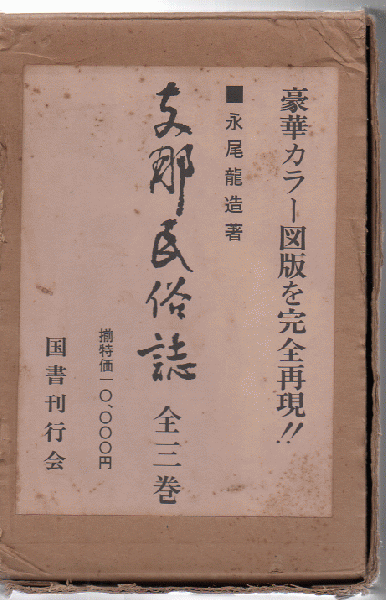 豪華カラー図版を完全再現!!
■永尾龍造著
支那民俗誌 全三巻
揃特価一〇、〇〇〇円
国書刊行会